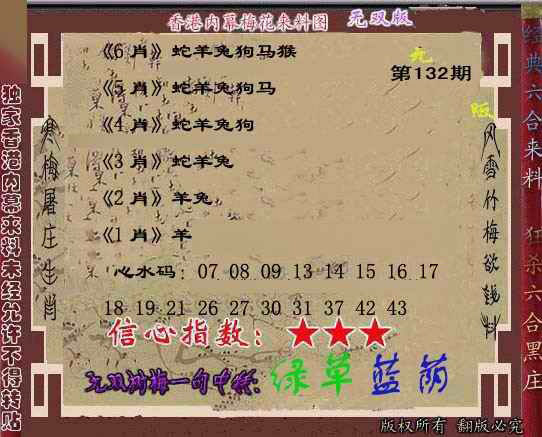 香港内幕梅花来料图 无双版
《6 肖》蛇羊兔狗马猴
第132期
《5 肖》蛇羊兔狗马
《4 肖》蛇羊兔狗
《3 肖》蛇羊兔
《2 肖》羊兔
《1 肖》羊
心水码: 07 08 09 13 14 15 16 17
18 19 21 26 27 30 31 37 42 43
信心指数: ★★★
无双测梅一句中特: 绿草蓝荫
版权所有 翻版必究
独家香港内幕来料未经允许不得转贴
寒梅屠庄生肖
风雪竹梅欲钱料
经典六合来料
狂杀六合黑庄
无
版